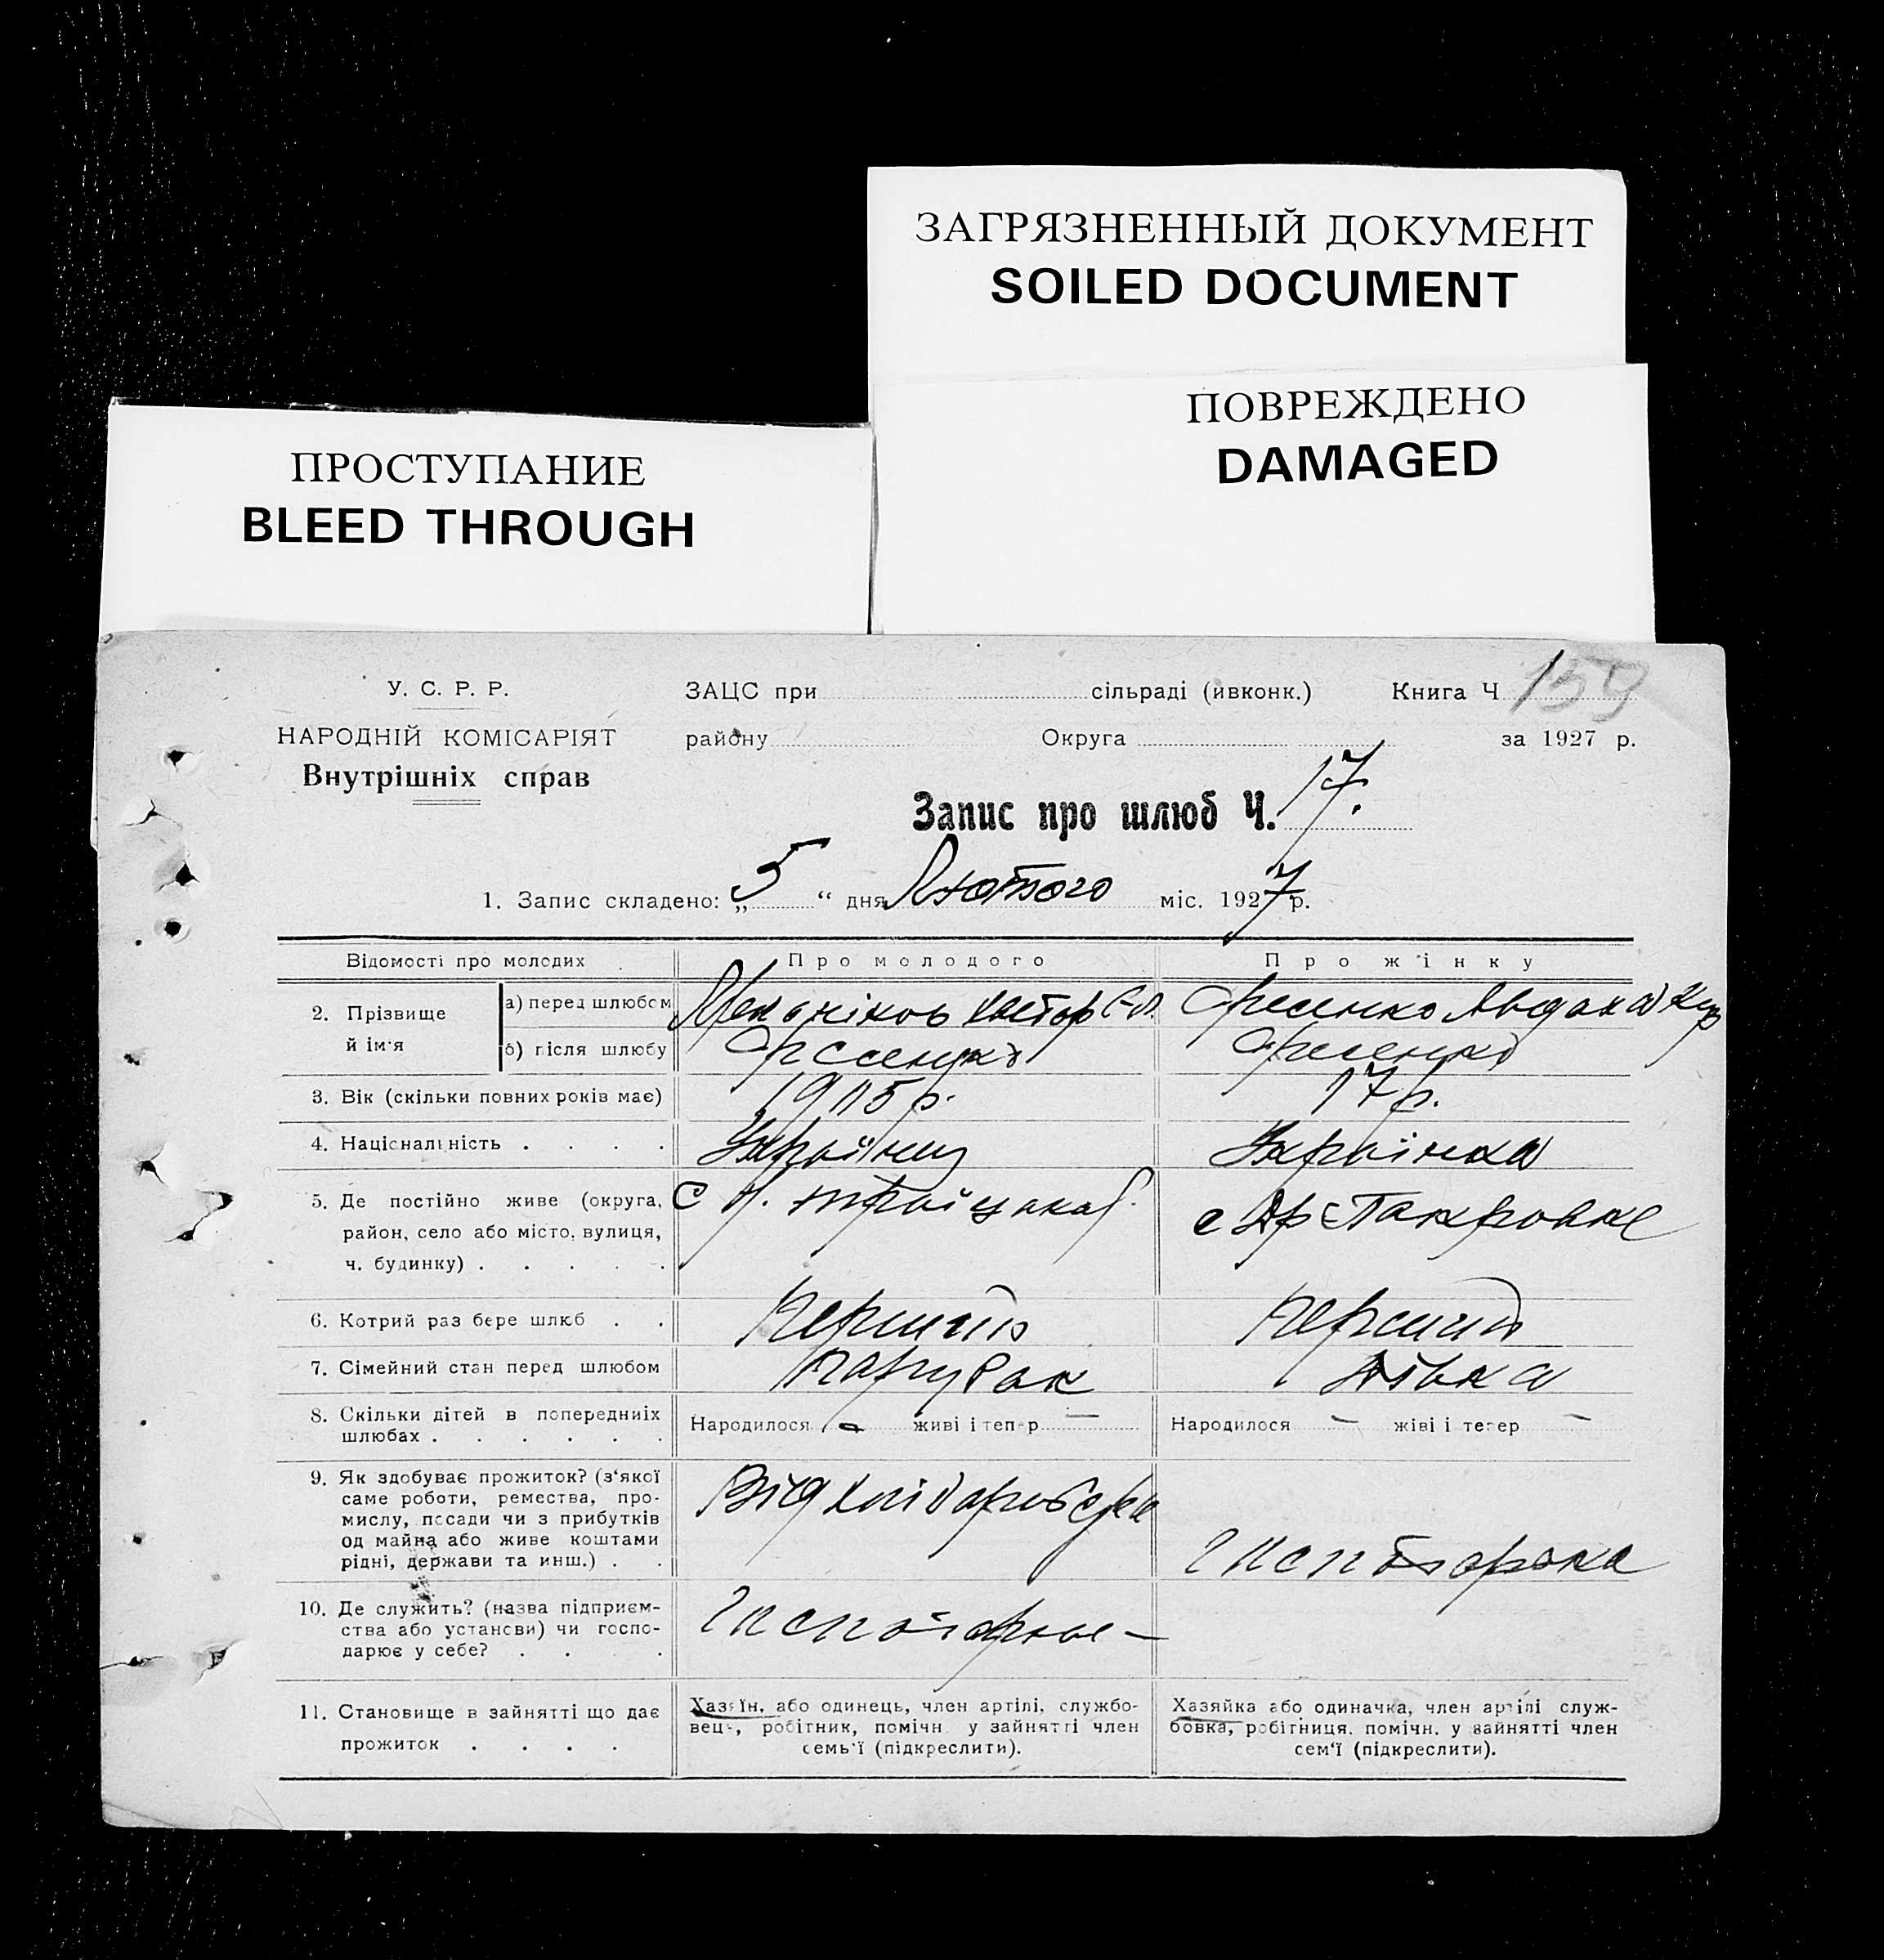 ЗАГРЯЗНЕННЫЙ ДОКУМЕНТ
SOILED DOCUMENT
ПОВРЕЖДЕНО
DAMAGED
ПРОСТУПАНИЕ
BLEED THROUGH
У. С. Р. Р.
ЗАЦС при сільраді (ивконк.) Книга Ч 159
НАРОДНІЙ КОМІСАРІЯТ
району Округа за 1927 р.
Внутрішніх справ
Запис про шлюб Ч. 17.
1. Запис складено: „5“ дня Лютого міс. 1927 р.
Відомості про молодих Про молодого Про жінку
2. Прізвище й ім'я
а) перед шлюбом
б) після шлюбу
3. Вік (скільки повних років має) 17 р.
4. Національність Українец Українка
5. Де постійно живе (округа,
район, село або місто, вулиця,
ч. будинку)
6. Котрий раз бере шлюб Перший Перший
7. Сімейний стан перед шлюбом Парубок Дівка
8. Скільки дітей в попередниіх
шлюбах
Народилося - живі і тепер —
Народилося — жіві і тепер —
9. Як здобуває прожиток? (з'якої
саме роботи, ремества, про-
мислу, посади чи з прибутків
од майна або живе коштами
рідні, держави та инш.)
10. Де служить? (назва підприєм-
ства або установи) чи госпо-
дарює у себе?
11. Становище в зайнятті що дає
прожиток
Хазяїн, або одинець, член артілі, службо-
вець, робітник, помічн. у зайнятті член
семь'ї (підкреслити).
Хазяйка або одиначка, член артілі служ-
бовка, робітниця. помічн. у зайнятті член
сем'ї (підкреслити).